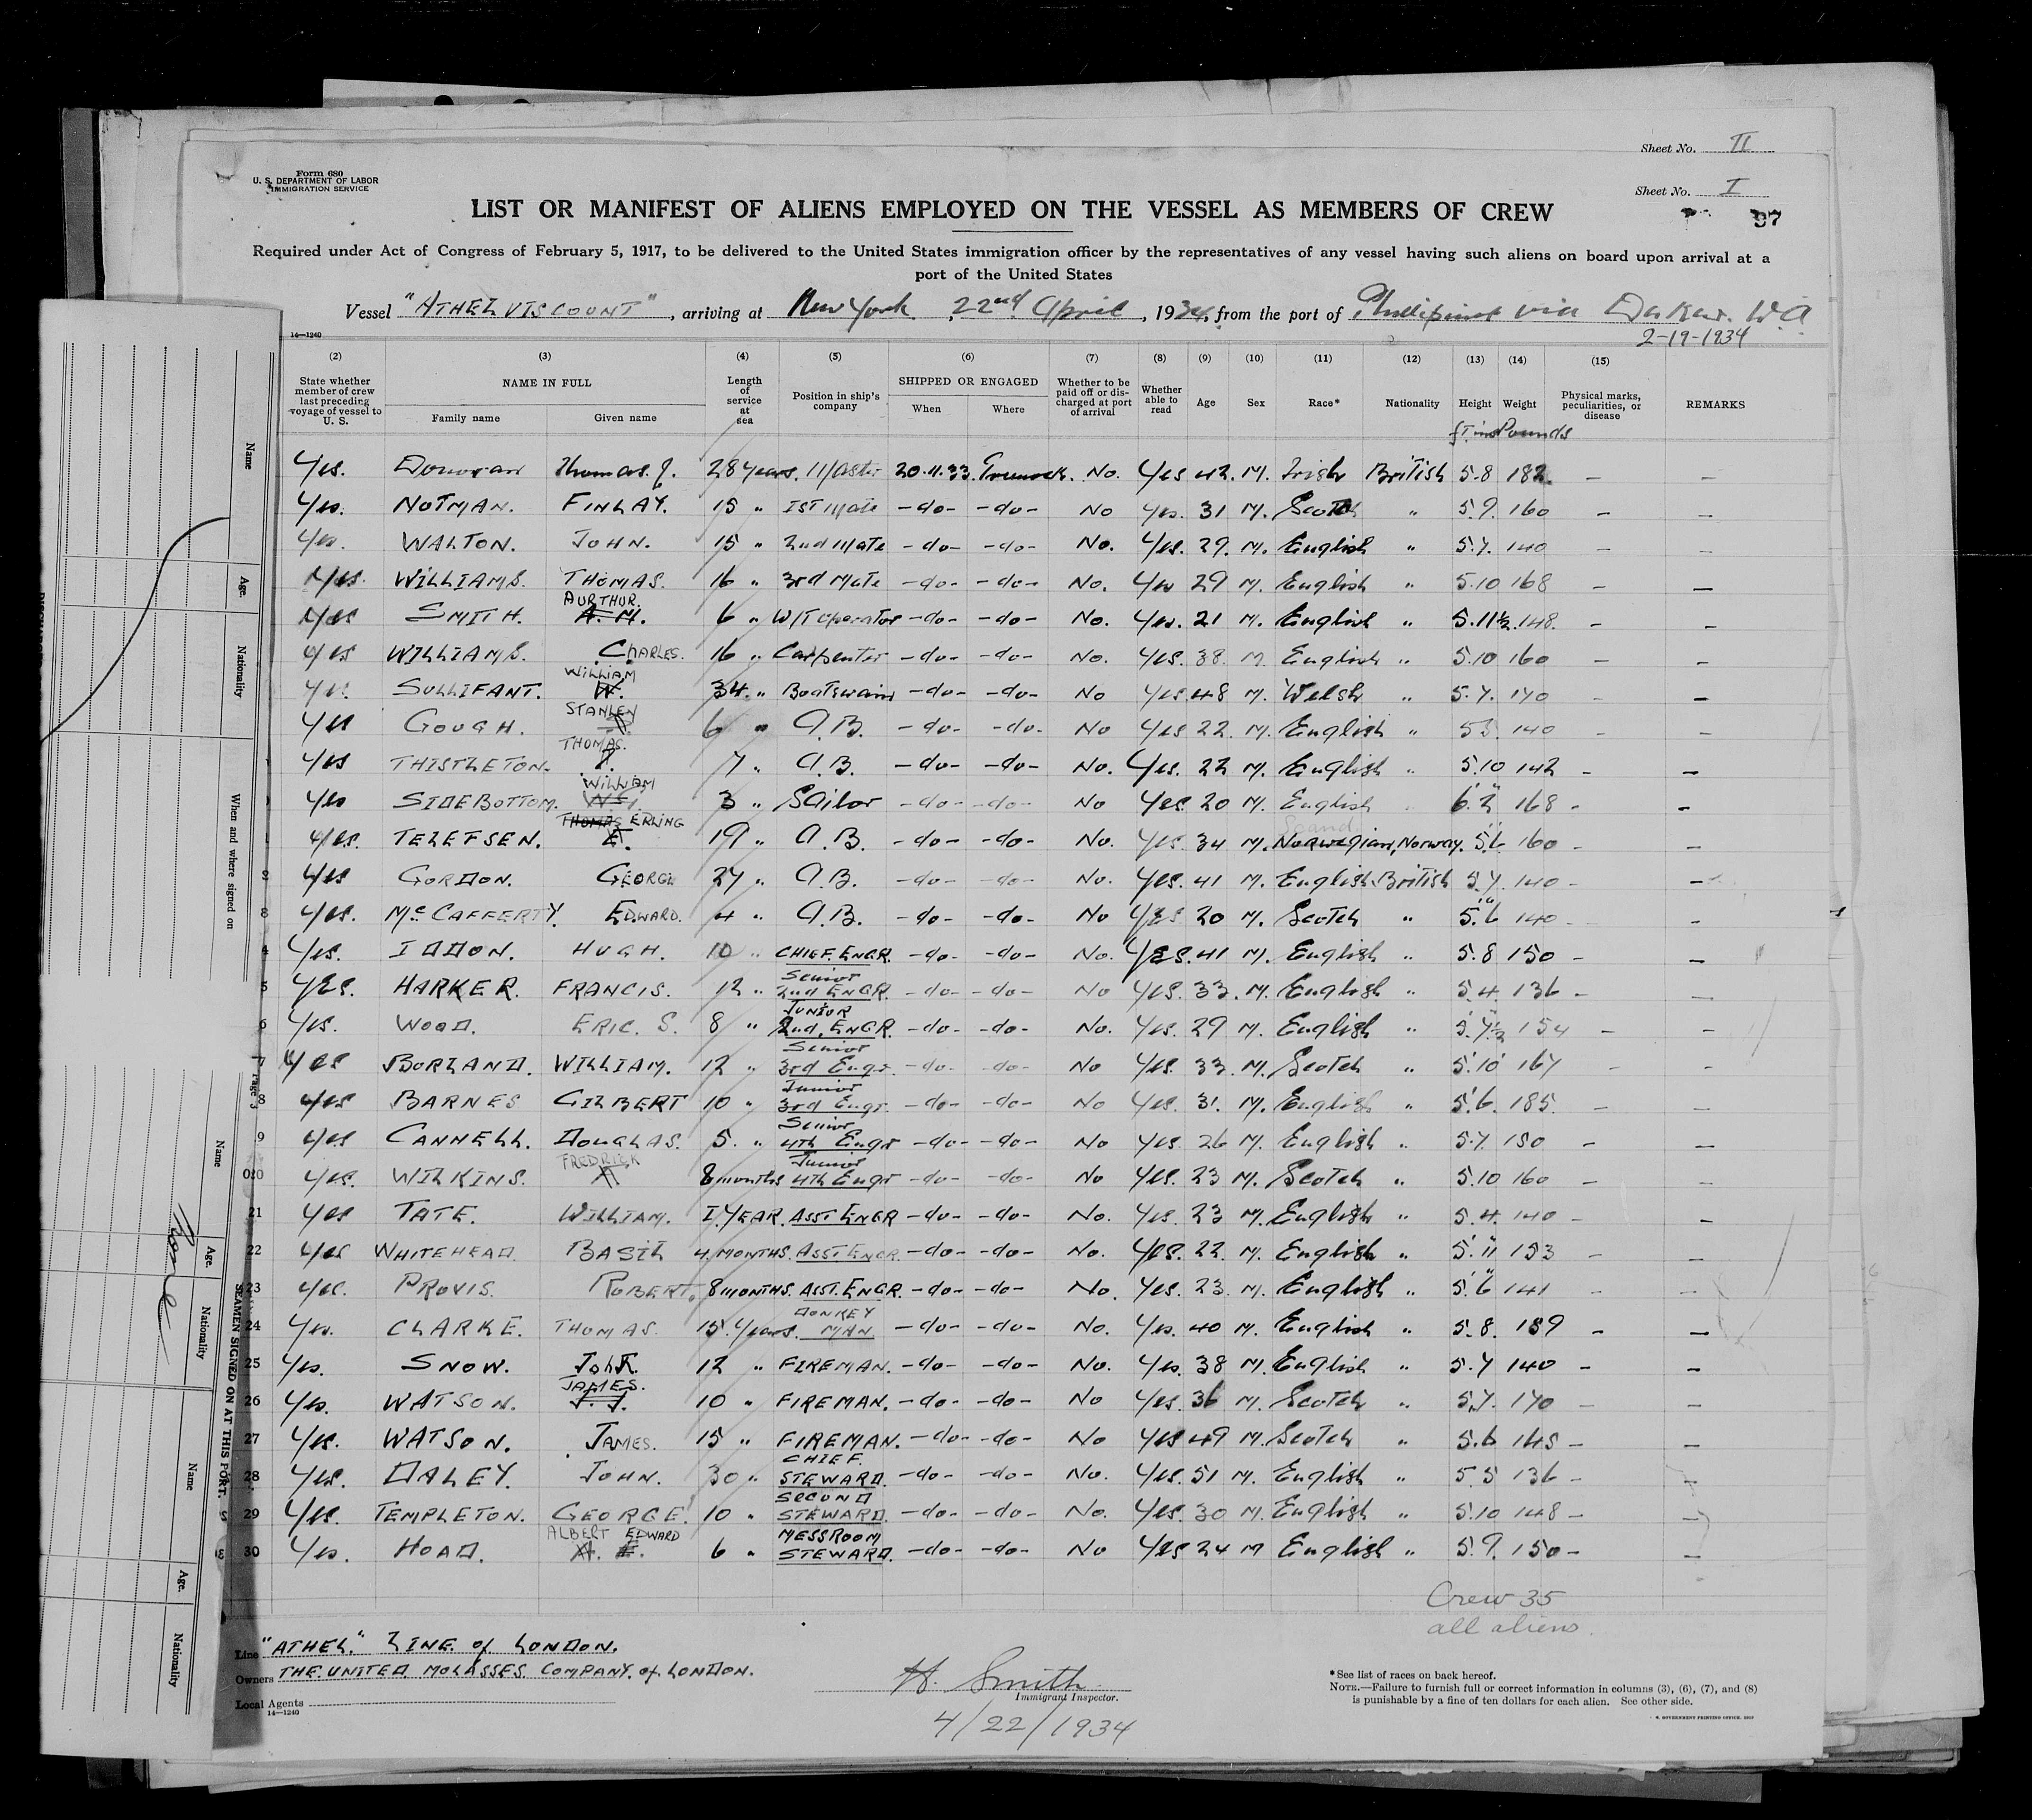 Sheet No. II
Form 680
U. S. DEPARTMENT OF LABOR
IMMIGRATION SERVICE
Sheet No. I
LIST OR MANIFEST OF ALIENS EMPLOYED ON THE VESSEL AS MEMBERS OF CREW
97
Required under Act of Congress of February 5, 1917, to be delivered to the United States immigration officer by the representatives of any vessel having such aliens on board upon arrival at a
port of the United States
Vessel "ATHELVISCOUNT", arriving at New York 22nd April, 1934, from the port of Phillipines via Dakar. W.A
2-19-1934
14—1240
(2) (3) (4) (5) (6) (7) (8) (9) (10) (11) (12) (13) (14) (15)
State whether member of crew last preceding voyage of vessel to U. S. NAME IN FULL Family name Given name Length of service at sea Position in ship's company SHIPPED OR ENGAGED When Where Whether to be paid off or discharged at port of arrival Whether able to read Age Sex Race* Nationality Height Weight Physical marks, peculiarities, or disease REMARKS
ft ins Pounds
Yes. Donovan Thomas. J. 28 years. Master 20.11.33. Greenock. No. Yes 42. M. Irish British 5.8 182. — —
Yes. NOTMAN. FINLAY. 15 " 1ST Mate -do- -do- No Yes. 31 M. Scotch " 5.9. 160 — —
Yes. WALTON. JOHN. 15 " 2nd Mate -do- -do- No. Yes. 29. M. English " 5.7. 140 — —
Yes. WILLIAMS. THOMAS. 16 " 3rd Mate -do- -do- No. Yes 29 M. English " 5.10 168 — —
Yes SMITH. A. H. AURTHUR. 6 " W/T operator -do- -do- No. Yes. 21 M. English " 5.11½. 148. — —
Yes WILLIAMS. CHARLES. 16 " Carpenter -do- -do- No. Yes. 38. M. English " 5.10 160 — —
Yes. SULLIFANT. W. WILLIAM 34. " Boatswain -do- -do- No Yes. 48 M. Welsh " 5.7. 170 — —
Yes GOUGH. STANLEY 6 " A.B. -do- -do- No Yes 22. M. English " 5 5. 140 — —
Yes THISTLETON. T. THOMAS. 7 " A.B. -do- -do- No. Yes. 22 M. English " 5.10 142 — —
Yes SIDEBOTTOM. WILLIAM 3 " Sailor -do- -do- No Yes. 20 M. English " 6.2 168 — —
Yes. TELEFSEN. E. THOMAS ERLING 19 " A.B. -do- -do- No. Yes. 34 M. Scand Norwegian, Norway. 5.6 160 — —
Yes GORDON. GEORGE 27 " A.B. -do- -do- No. Yes. 41 M. English British 5.7. 140 — —
Yes. McCAFFERTY. EDWARD. 4 " A.B. -do- -do- No Yes 20 M. Scotch " 5.6 140 — —
Yes. IDDON. HUGH. 10 " CHIEF. ENGR. -do- -do- No. Yes. 41 M. English " 5.8 150 — —
Yes. HARKER. FRANCIS. 12 " Senior 2nd ENGR. -do- -do- No Yes. 33. M. English " 5.4. 136 — —
Yes. WOOD. ERIC. S. 8 " JUNIOR 2nd. ENGR. -do- -do- No. Yes. 29 M. English " 5.7½ 154 — —
Yes BORLAND. WILLIAM. 12 " Senior 3rd Engr. -do- -do- No Yes. 33. M. Scotch " 5.10 167 — —
Yes BARNES GILBERT 10 " Junior 3rd Engr. -do- -do- No Yes. 31. M. English " 5.6. 185. — —
Yes CANNELL. DOUGLAS. 5. " Senior 4th Engr -do- -do- No Yes. 26 M. English " 5.7. 150 — —
Yes. WILKINS. FREDRICK 8 months Junior 4th Engr -do- -do- No Yes. 23 M. Scotch " 5.10 160 — —
21 Yes TATE. WILLIAM. I. YEAR. ASST ENGR -do- -do- No. Yes. 23 M. English " 5.4. 140 — —
22 Yes WHITEHEAD BASIL 4. MONTHS. ASST ENGR. -do- -do- No. Yes. 22. M. English " 5.11 153 — —
23 Yes. PROVIS. ROBERT. 8 MONTHS. ASST. ENGR. -do- -do- No. Yes. 23. M. English " 5.6 141 — —
24 Yes. CLARKE. THOMAS. 15. Years. DONKEY MAN. -do- -do- No. Yes. 40 M. English " 5.8. 159 — —
25 Yes. SNOW. John. 12 " FIREMAN. -do- -do- No. Yes. 38 M. English " 5.7 140 — —
26 Yes. WATSON. J. J. JAMES. 10 " FIREMAN. -do- -do- No Yes. 36 M. Scotch " 5.7. 170 — —
27 Yes. WATSON. JAMES. 15 " FIREMAN. -do- -do- No Yes 49 M. Scotch " 5.6 145 — —
28 Yes. DALEY. JOHN. 30 " CHIEF. STEWARD. -do- -do- No. Yes. 51 M. English " 5 5 136 — —
29 Yes. TEMPLETON. GEORGE. 10 " SECOND STEWARD. -do- -do- No. Yes. 30 M. English " 5.10 148 — —
30 Yes. HOAD. A. E. ALBERT EDWARD 6 " MESSROOM STEWARD. -do- -do- No Yes 24 M English " 5.9. 150 — —
Crew 35
all aliens.
Line "ATHEL." LINE. of LONDON.
Owners THE. UNITED MOLASSES COMPANY. of LONDON.
Local Agents
14—1240
H. Smith
Immigrant Inspector.
4/22/1934
*See list of races on back hereof.
NOTE.—Failure to furnish full or correct information in columns (3), (6), (7), and (8)
is punishable by a fine of ten dollars for each alien. See other side.
GOVERNMENT PRINTING OFFICE
Name
Age.
Nationality
When and where signed on
Page 3
Name
Age.
Nationality
None
SEAMEN SIGNED ON AT THIS PORT.
Name
Age.
Nationality